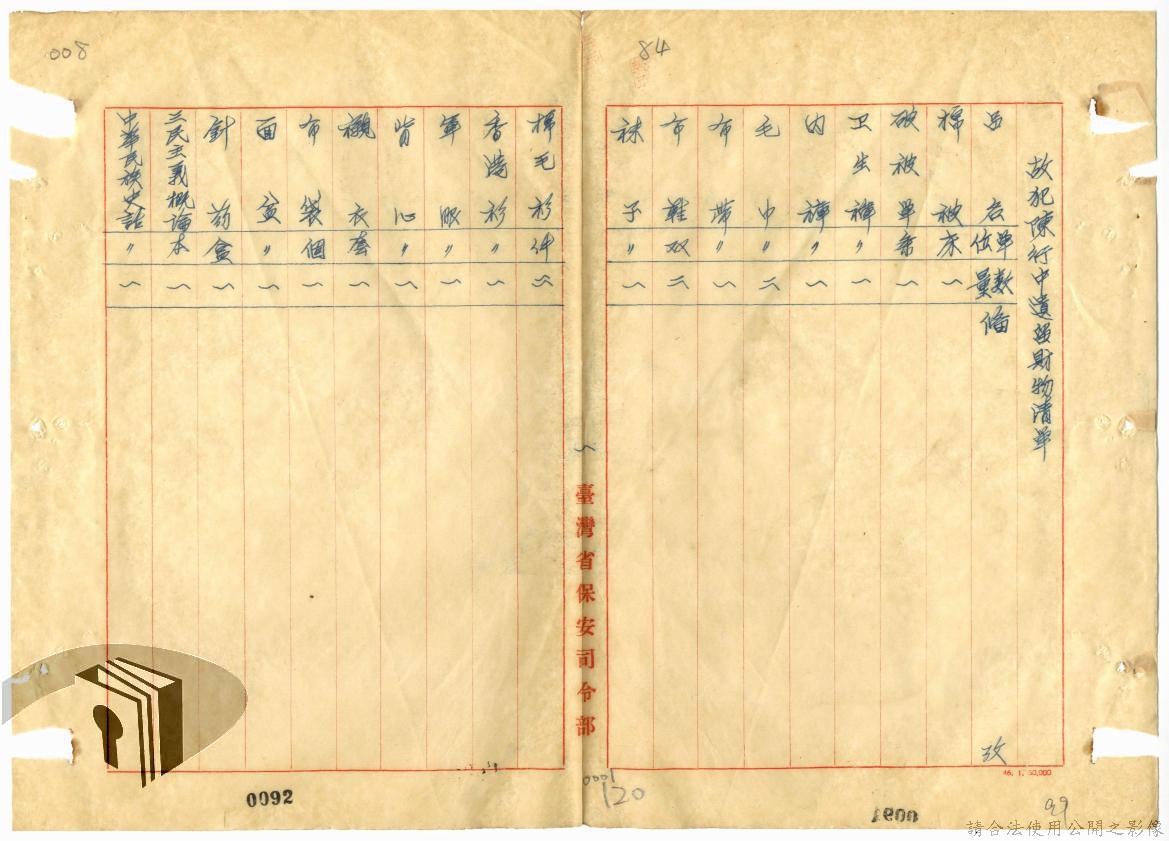 008
84
故犯陳行中遺留財物清單
品名 單位 數量 備攷
棉被 床 一
破被單 条 一
卫生褲 〃 一
内褲 〃 一
毛巾 〃 二
布帶 〃 一
布鞋 双 二
袜子 〃 一
棉毛衫 件 二
香港衫 〃 一
軍服 〃 一
背心 〃 一
襯衣 套 一
布袋 個 一
面盆 〃 一
針药 盒 一
三民主義概論 本 一
中華民族史話 〃 一
一
臺灣省保安司令部
46. 1. 50,000
0001
120
99
0092
0091
請合法使用公開之影像